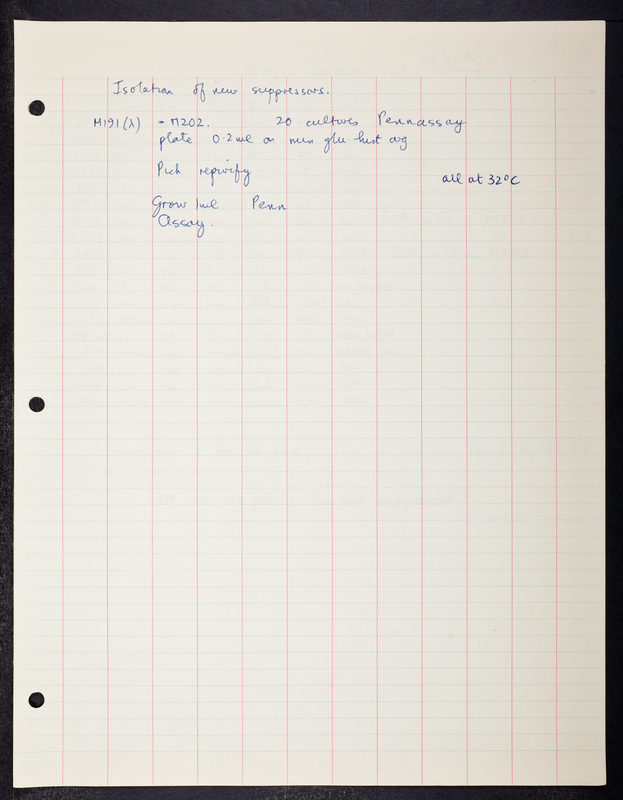 Isolation of new suppressors.
M191(λ) = M202. 20 cultures Pennassay
plate 0.2ml on min glu hist arg
Pick repurify
all at 32°C
Grow 1ml Penn
Assay.